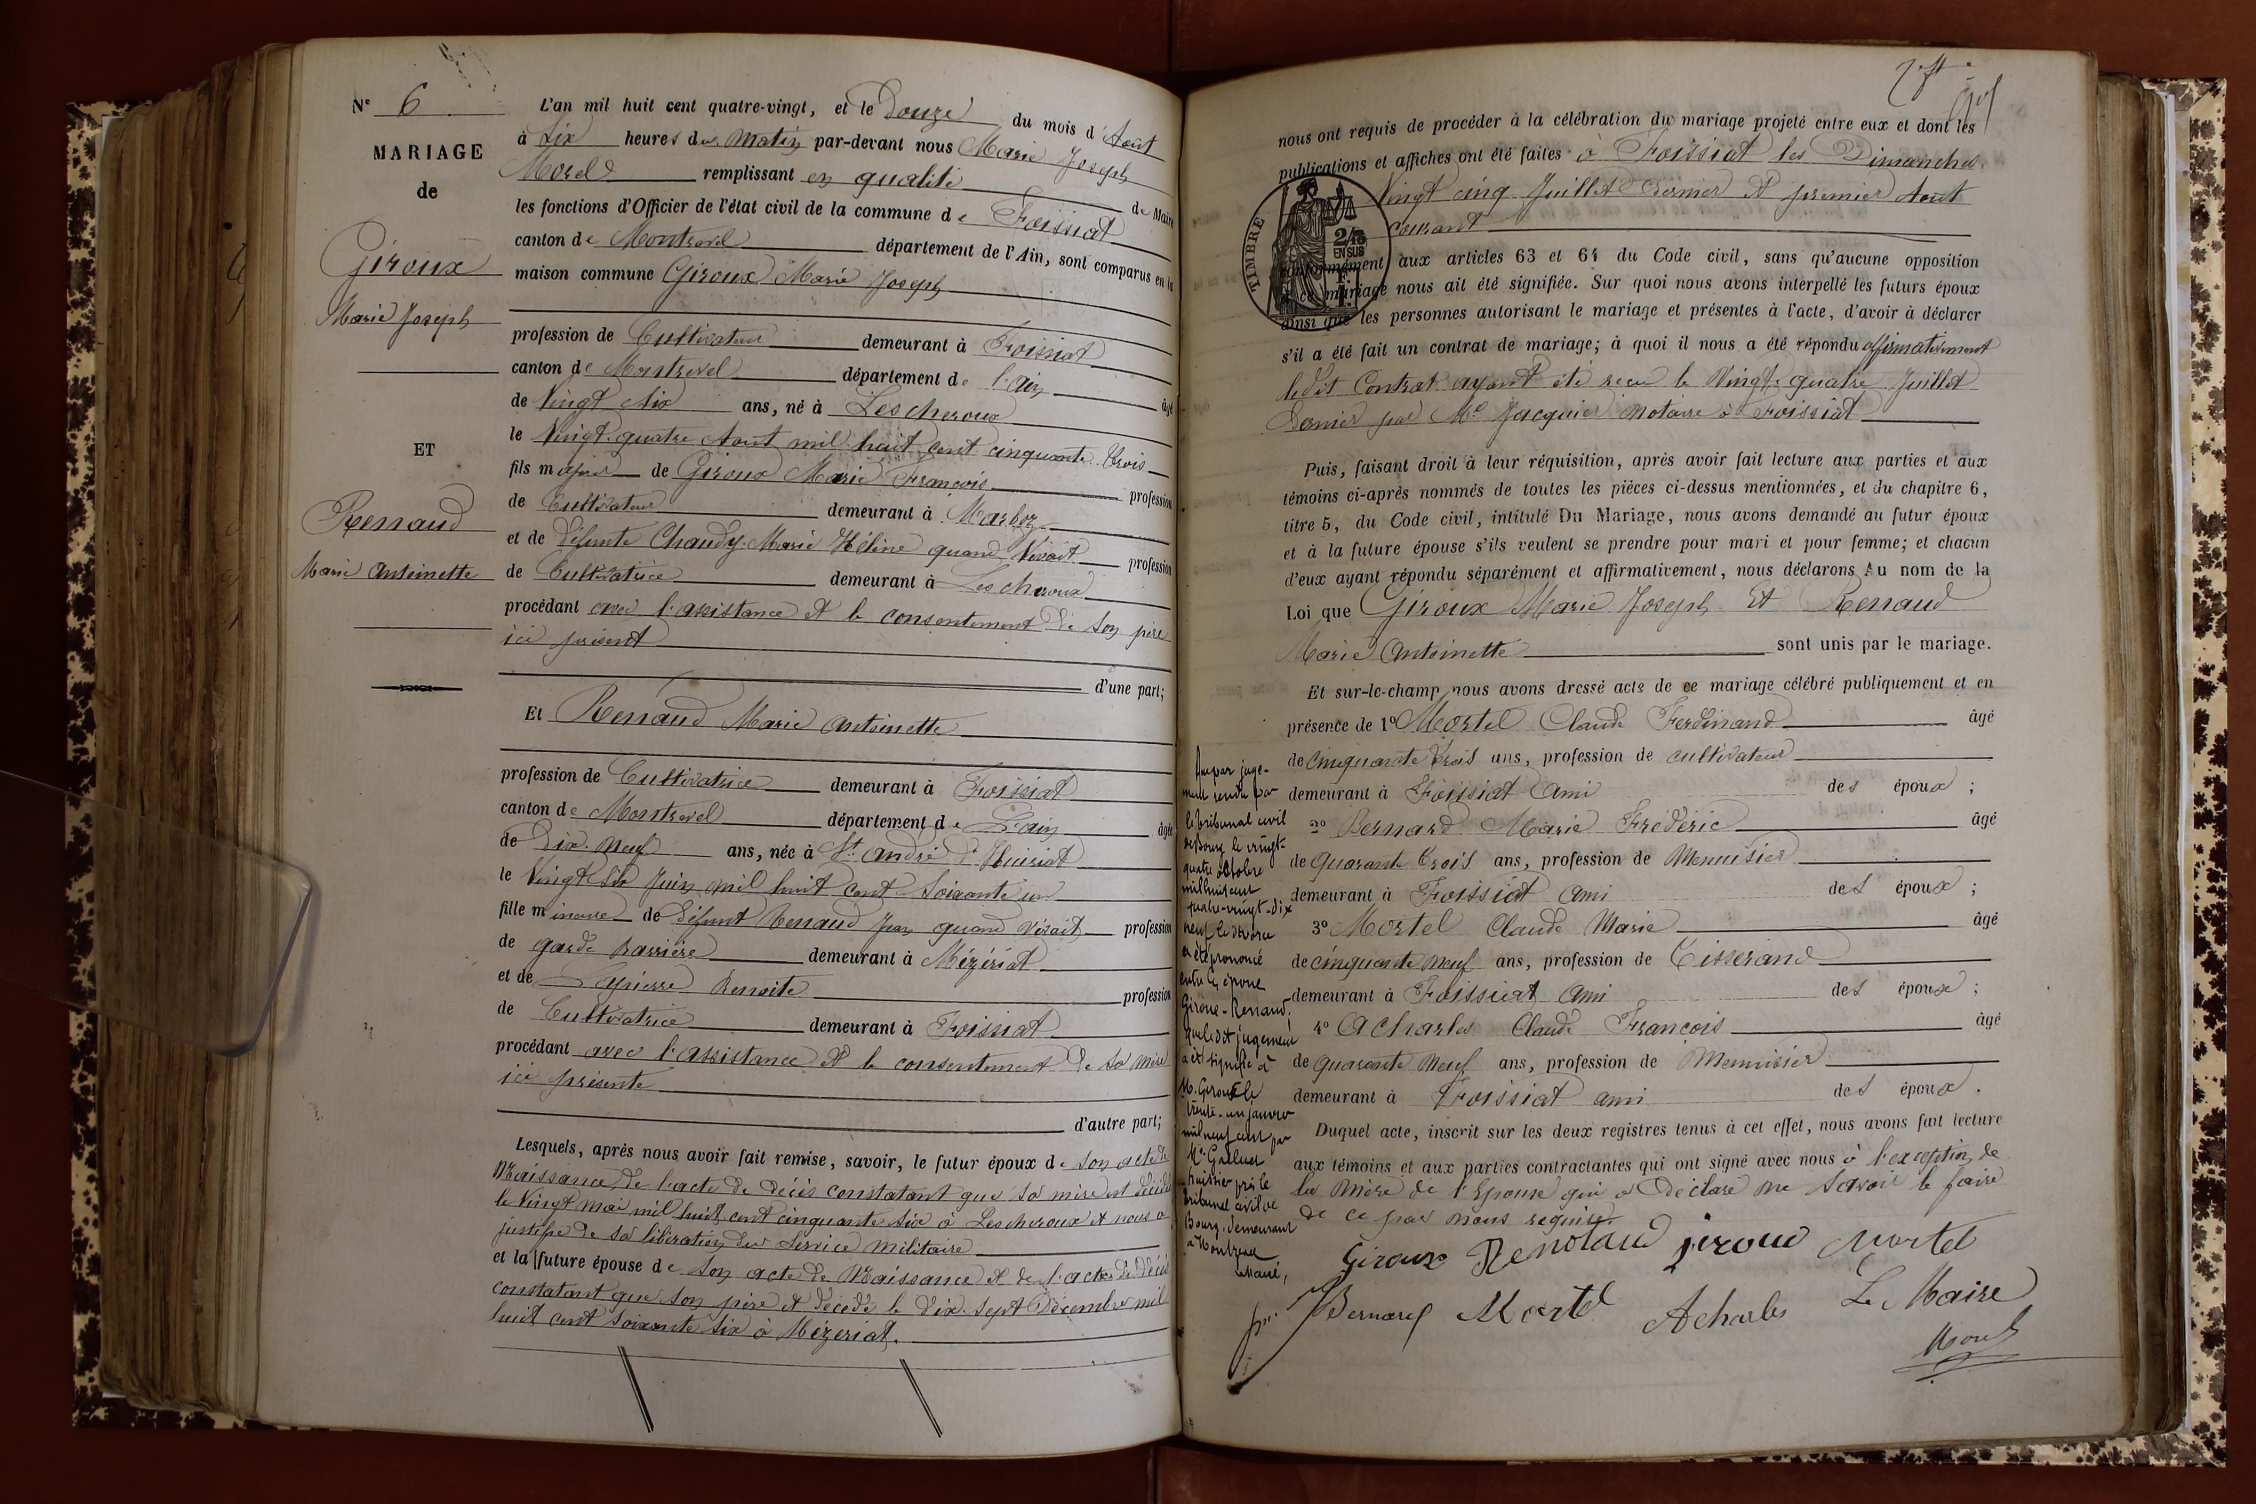 N° 6
MARIAGE
de
Giroux
Marie Joseph
ET
Renaud
Marie Antoinette
L'an mil huit cent quatre-vingt, et le Douze du mois d'Août
à dix heures du Matin par-devant nous Marie Joseph
Morel remplissant en qualité de Maire
les fonctions d'Officier de l'état civil de la commune de Foissiat
canton de Montrevel département de l'Ain, sont comparus en la
maison commune Giroux Marie Joseph
profession de Cultivateur demeurant à Foissiat
canton de Montrevel département de l'ain âgé
de Vingt six ans, né à Lescheroux
le Vingt-quatre Aout mil huit cent cinquante trois
fils majeur de Giroux Marie François profession
de Cultivateur demeurant à Marboz
et de défunte Chaudy Marie Hélène quand vivait profession
de Cultivatrice demeurant à Lescheroux
procédant avec l'assistance et le consentement de son père
ici présent
d'une part;
Et Renaud Marie Antoinette
profession de Cultivatrice demeurant à Foissiat
canton de Montrevel département de L'ain âgée
de Dix-neuf ans, née à St André d'Huiriat
le Vingt six Juin mil huit cent soixante un
fille mineure de défunt Renaud Jean quand vivait profession
de garde barrière demeurant à Mézériat
et de Benoite profession
de Cultivatrice demeurant à Foissiat
procédant avec l'assistance et le consentement de sa mère
ici présente
d'autre part;
Lesquels, après nous avoir fait remise, savoir, le futur époux de son acte de
Naissance, de l'acte de décès constatant que sa mère est décédée
le Vingt mai mil huit cent cinquante six à Lescheroux et nous a
justifié de sa libération du service militaire
et la future épouse de son acte de Naissance et de l'acte de décès
constatant que son père est décédé le dix-sept Décembre mil
huit cent soixante six à Mézériat.
nous ont requis de procéder à la célébration du mariage projeté entre eux et dont les
publications et affiches ont été faites à Foissiat les Dimanches
Vingt cinq Juillet dernier et premier Aout
courant
TIMBRE
2/10
EN SUS
conformément aux articles 63 et 64 du Code civil, sans qu'aucune opposition
à ce mariage nous ait été signifiée. Sur quoi nous avons interpellé les futurs époux
ainsi que les personnes autorisant le mariage et présentes à l'acte, d'avoir à déclarer
s'il a été fait un contrat de mariage; à quoi il nous a été répondu affirmativement
ledit Contrat ayant été reçu le Vingt-quatre Juillet
dernier par Me Jacquier notaire à Foissiat
Puis, faisant droit à leur réquisition, après avoir fait lecture aux parties et aux
témoins ci-après nommés de toutes les pièces ci-dessus mentionnées, et du chapitre 6,
titre 5, du Code civil, intitulé Du Mariage, nous avons demandé au futur époux
et à la future épouse s'ils veulent se prendre pour mari et pour femme; et chacun
d'eux ayant répondu séparément et affirmativement, nous déclarons Au nom de la
Loi que Giroux Marie Joseph Et Renaud
Marie Antoinette sont unis par le mariage.
Et sur-le-champ nous avons dressé acte de ce mariage célébré publiquement et en
présence de 1° Mortel Claude Ferdinand âgé
de Cinquante trois ans, profession de cultivateur
demeurant à Foissiat Ami des époux ;
2° Bernard Marie Frédéric âgé
de quarante trois ans, profession de Menuisier
demeurant à Foissiat ami des époux ;
3° Mortel Claude Marie âgé
de cinquante neuf ans, profession de Tisserand
demeurant à Foissiat ami des époux ;
4° Acharles Claude François âgé
de quarante neuf ans, profession de Menuisier
demeurant à Foissiat ami des époux.
Duquel acte, inscrit sur les deux registres tenus à cet effet, nous avons fait lecture
aux témoins et aux parties contractantes qui ont signé avec nous à l'exception de
la Mère de l'Epouse qui a déclaré ne savoir le faire
de ce par nous requise.
Giroux Renotaud giroux Mortel
Bernard Mortel Acharles Le Maire
Morel
par juge-
ment rendu par
le tribunal civil
de Bourg le vingt-
quatre octobre
mil huit cent
quatre-vingt-dix
neuf le divorce
a été prononcé
entre les époux
Giroux-Renaud,
que ledit jugement
a été signifié à
M. Giroux le
trente-un janvier
mil neuf cent par
Me
huissier près le
tribunal civil de
Bourg, demeurant
à Montrevel